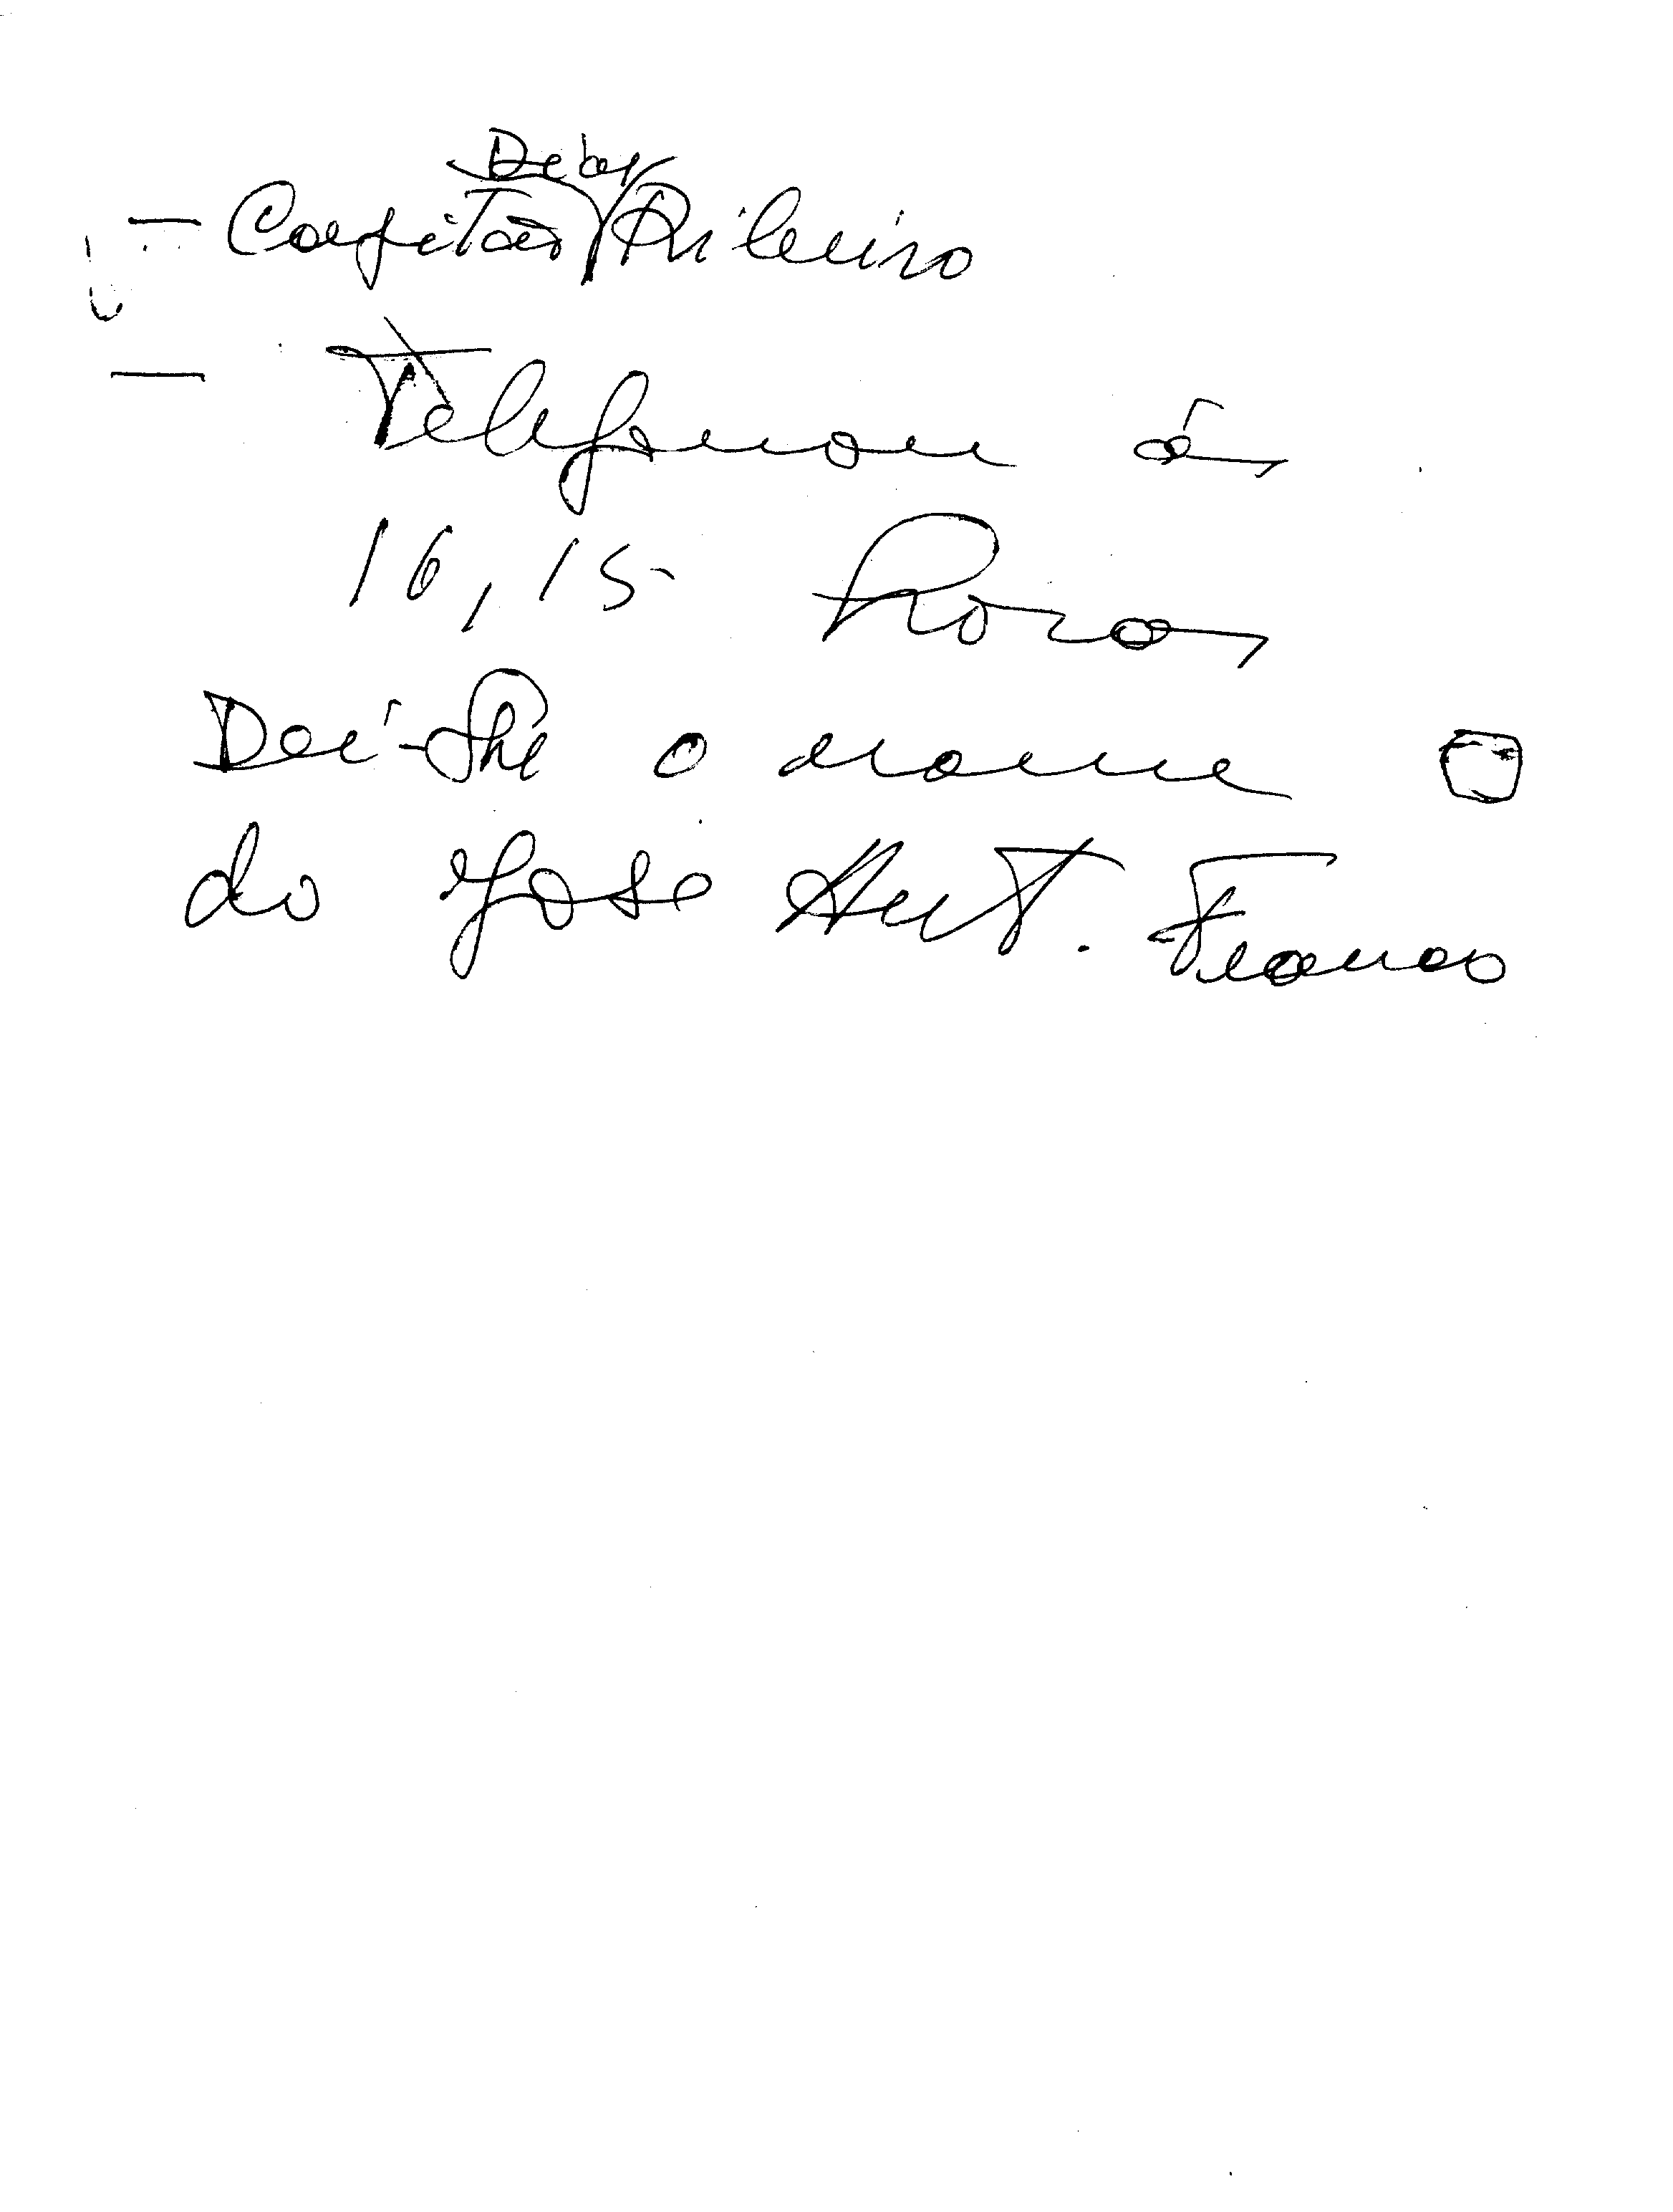 - Capitão Ribeiro
- Telefonou ás
16,15 horas
Dei-lhe o nome
do José Ant. Franco